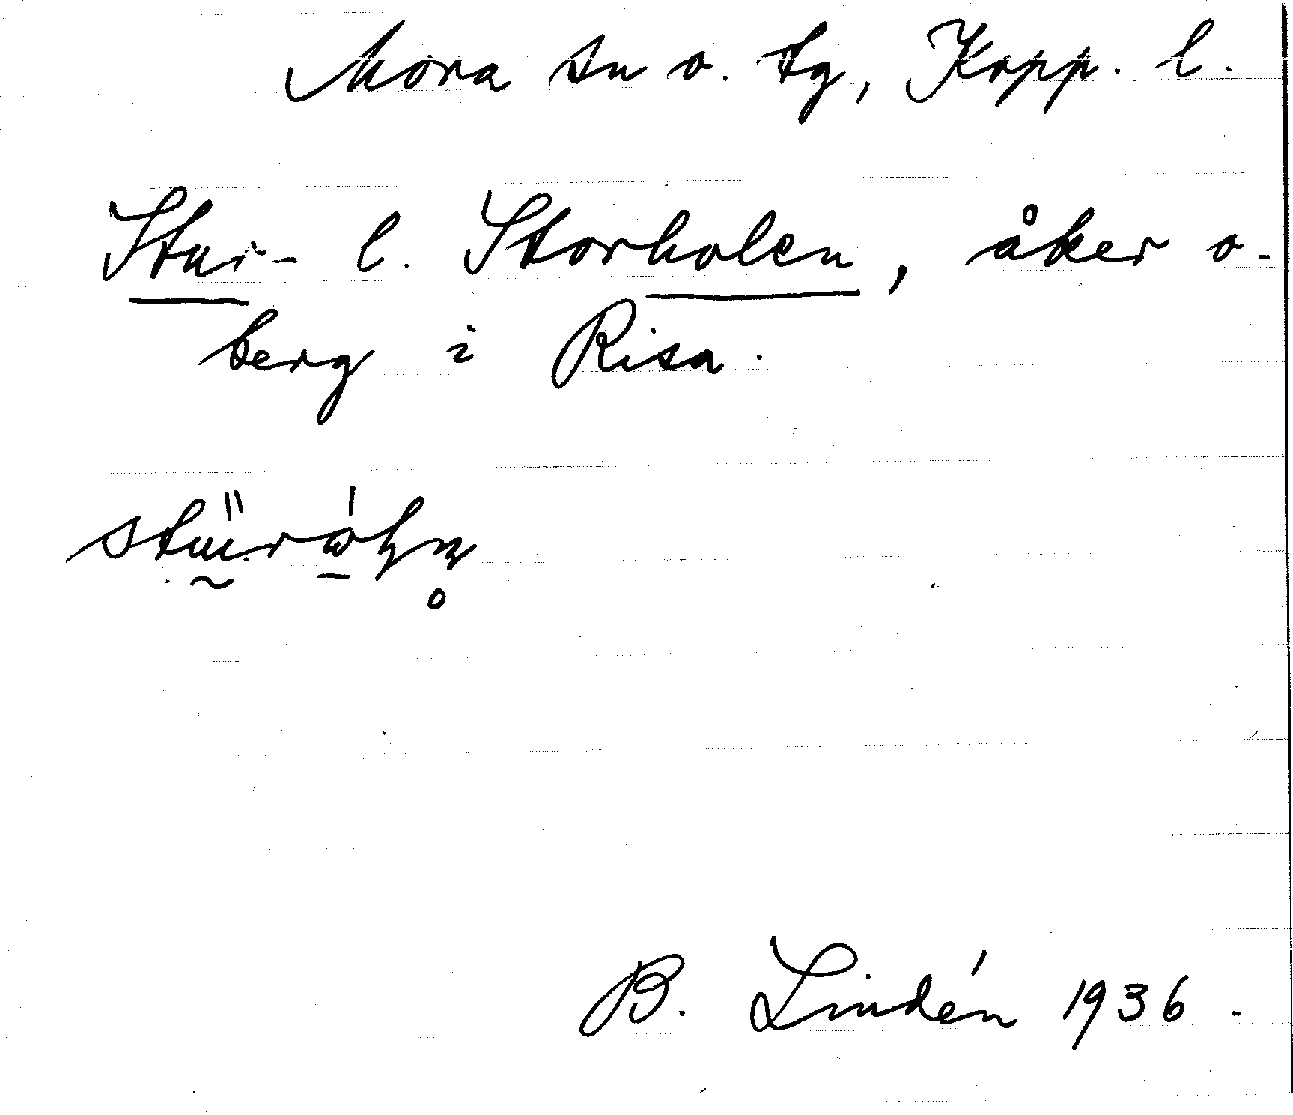 Mora sn o. tg, Kopp. l.
Stur- l. Storholen, åker o.
berg i Risa.
B. Lindén 1936.